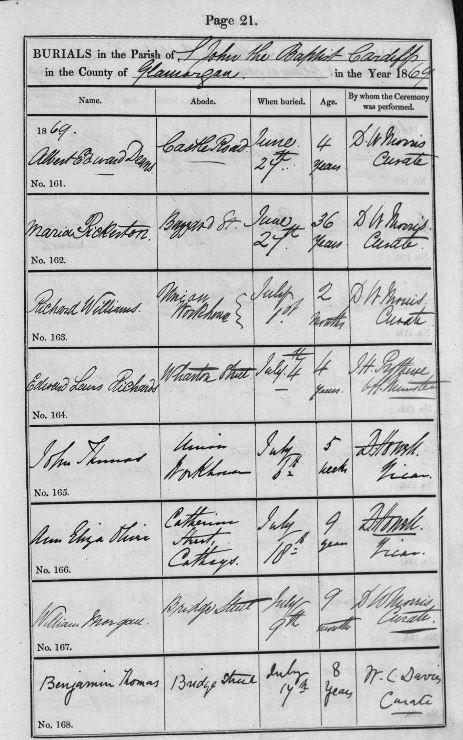 Page 21.
BURIALS in the Parish of St John the Baptist Cardiff
in the County of Glamorgan in the Year 1869
Name.
Abode.
When buried.
Age.
By whom the Ceremony
was performed.
1869.
Albert Edward Deans
No. 161.
Castle Road
June
27th
4
years
D. W. Morris
Curate
Maria Pickerton.
No. 162.
St.
June
27th
36
years
D W Morris
Curate
Richard Williams.
No. 163.
Union
Workhouse
July
1st
2
months
D. W. Morris
Curate
Edward Richards
No. 164.
Wharton Street
July 4th
4
years.
Minister
John Thomas
No. 165.
Union
Workhouse
July
8th
5
weeks
Vicar.
Ann Eliza
No. 166.
Catherine
Street,
Cathays.
July
18th
9
years
Vicar.
William Morgan.
No. 167.
Bridge Street
July
9th
9
months
D W Morris
Curate.
Benjamin Thomas
No. 168.
Bridge Street
July
17th
8
years
W. C Davies
Curate